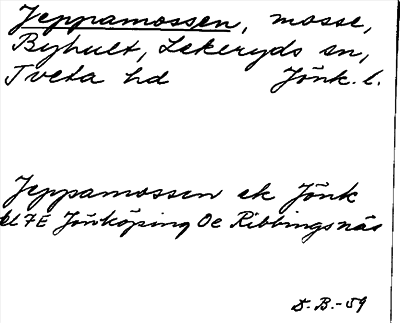 Jeppamossen, mosse,
Byhult, Lekeryds sn,
Tveta hd Jönk. l.
Jeppamossen ek Jönk
bl 7E Jönköping Oe Ribbingsnäs
S. B. -59